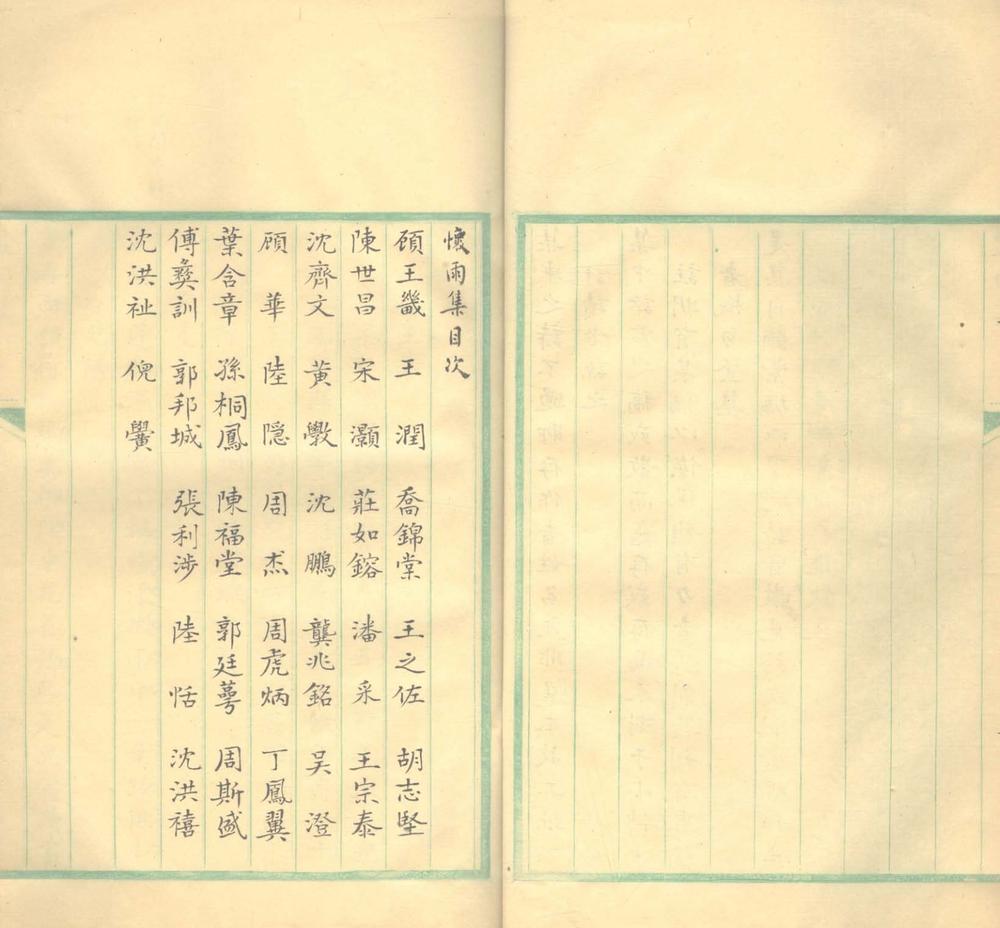 懷雨集目次
顧王畿 王潤 喬錦棠 王之佐 胡志堅
陳世昌 宋灝 莊如鎔 潘采 王宗泰
沈齊文 黃斅 沈鵬 龔兆銘 吴澄
顧華 陸隱 周杰 周虎炳 丁鳳翼
葉含章 孫桐鳳 陳福堂 郭廷蕚 周斯盛
傅彝訓 郭邦城 張利涉 陸恬 沈洪禧
沈洪祉 倪黌